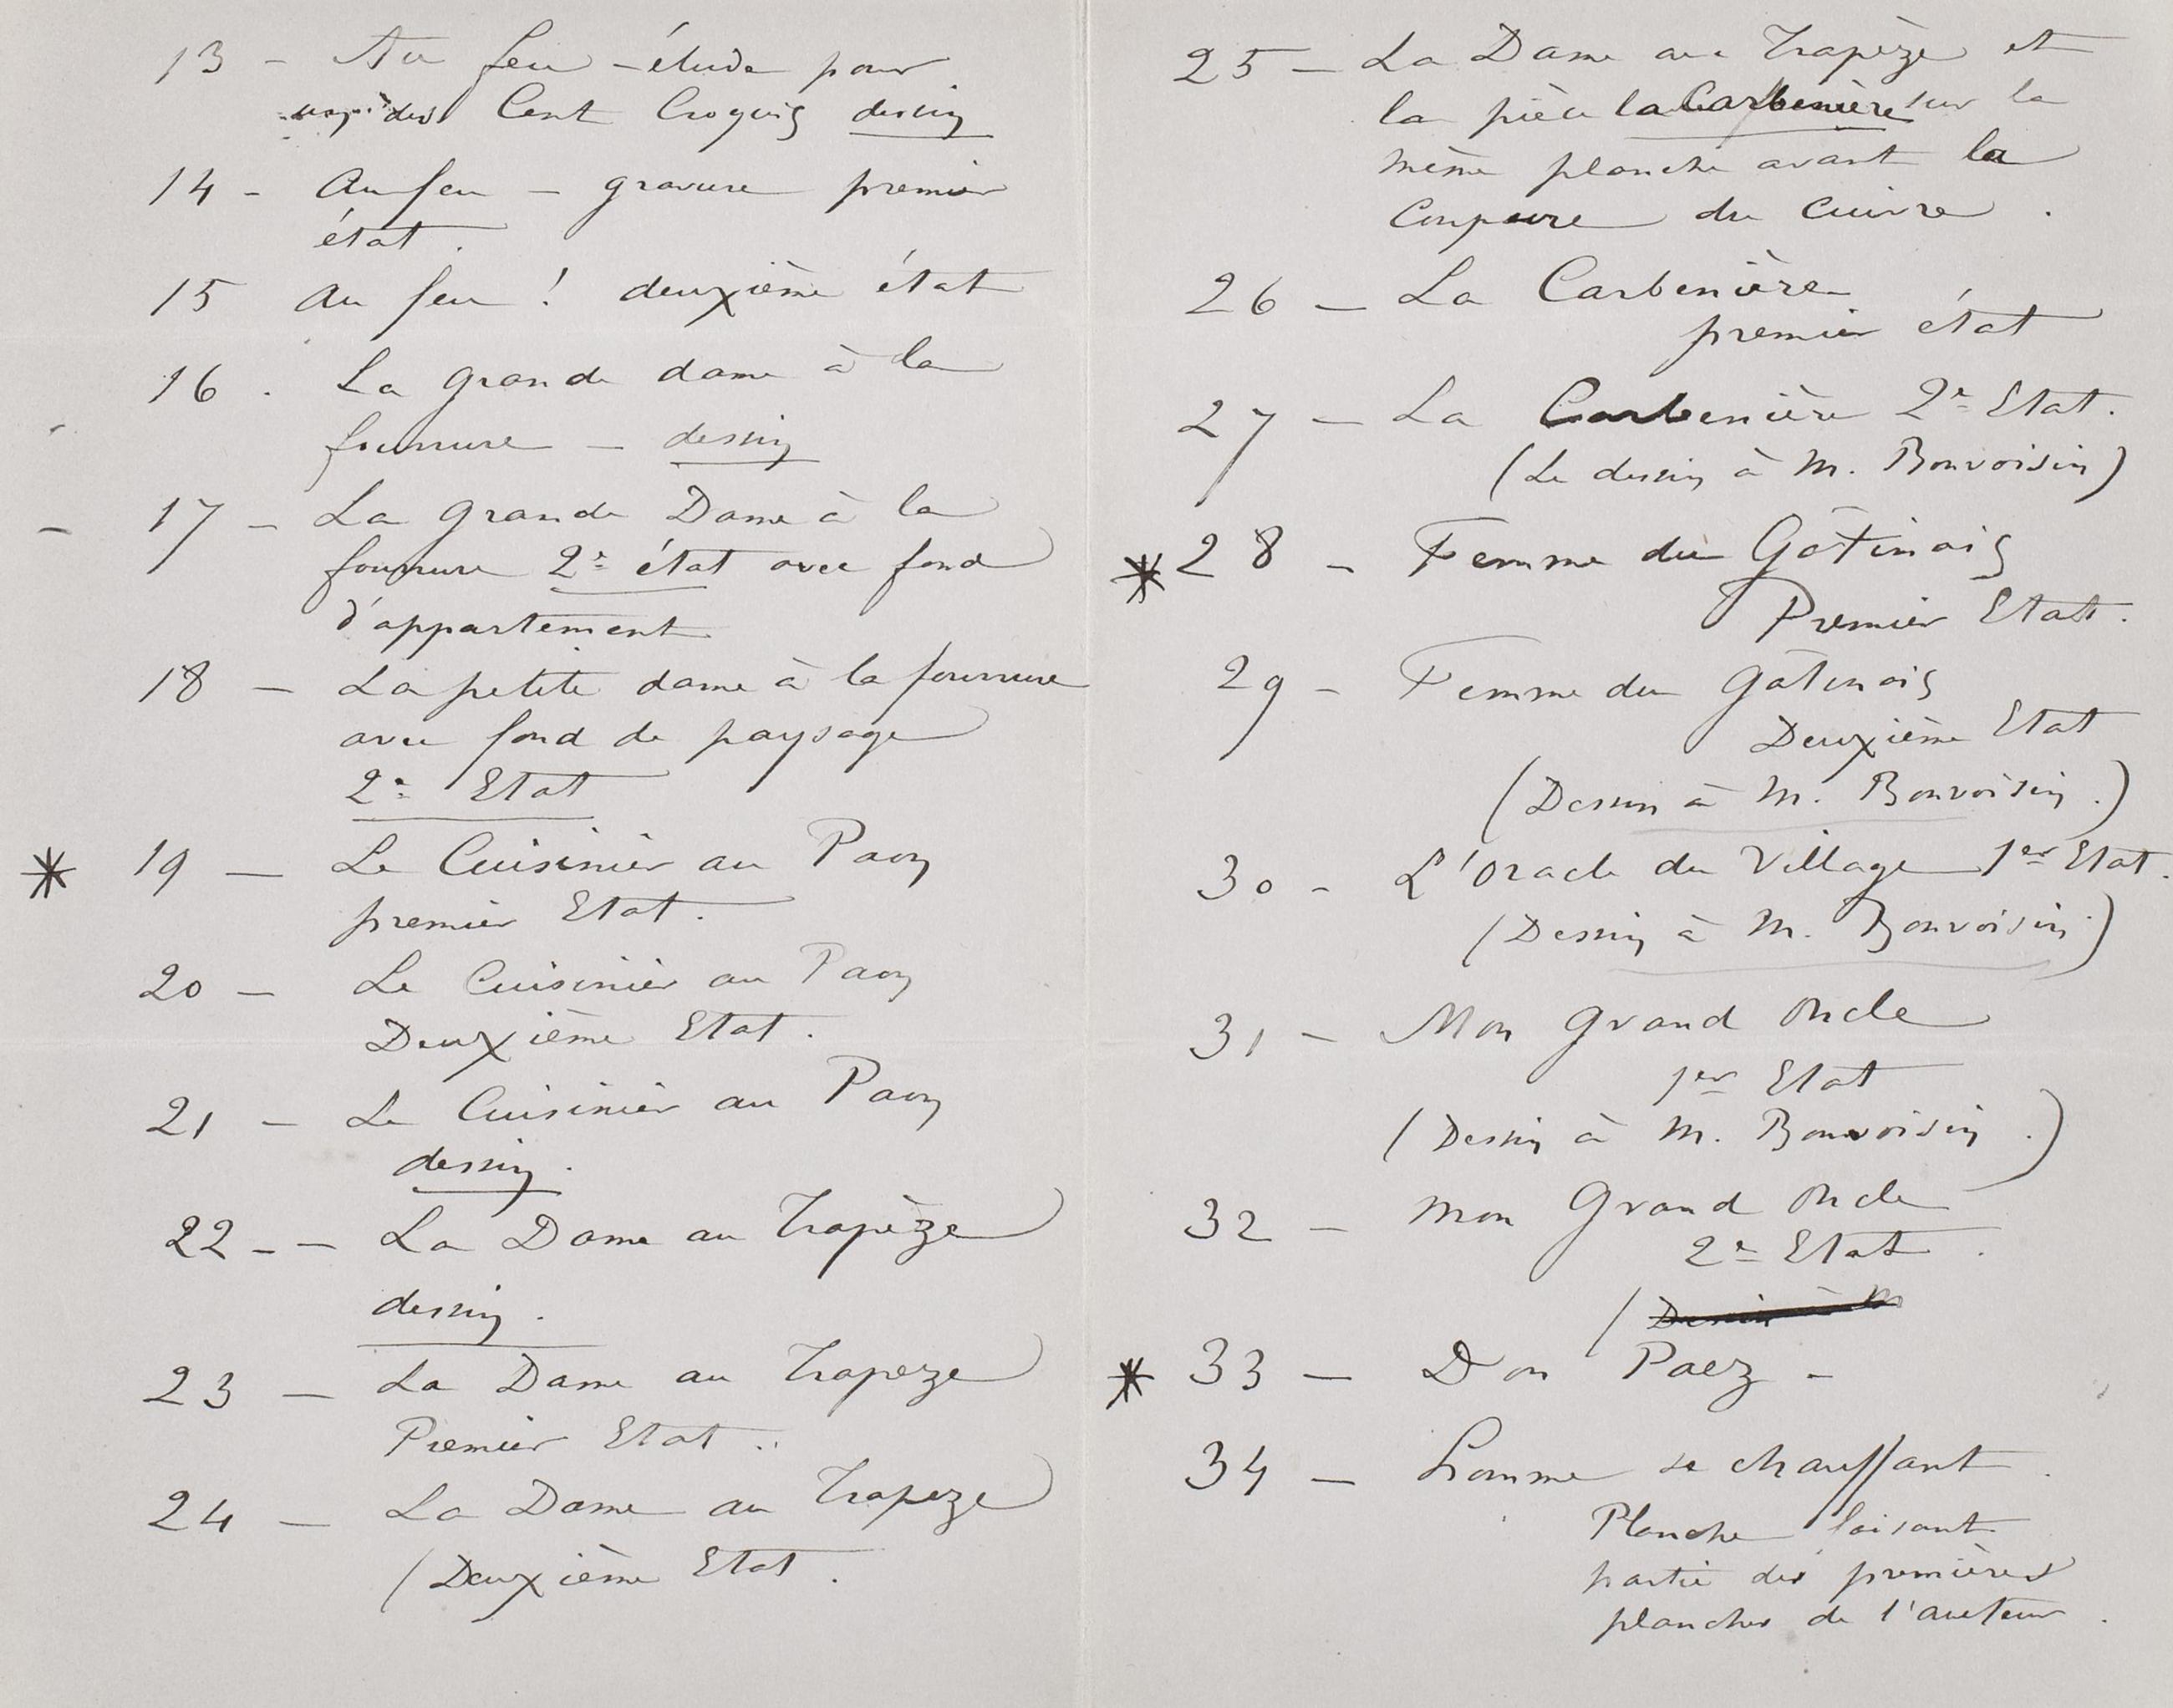 13 - Au feu - étude pour
des Cent Croquis dessin
14 - Au feu - gravure premier
état.
15 Au feu ! deuxième état
16. La grande dame à la
fourrure - dessin
- 17 - La grande Dame à la
fourrure 2e état avec fond
d'appartement
18 - La petite dame à la fourrure
avec fond de paysage
2e Etat
* 19 - Le Cuisinier au Paon
premier Etat.
20 - Le Cuisinier au Paon
Deuxième Etat.
21 - Le Cuisinier au Paon
dessin.
22 - - La Dame au Trapèze
dessin.
23 - La Dame au Trapeze
Premier Etat..
24 - La Dame au Trapeze
(Deuxième Etat.
25 - La Dame au Trapèze et
la pièce la Carbenière sur la
même planche avant la
Coupure du Cuivre.
26 - La Carbenière
premier état
27 - La Carbenière 2e Etat.
(Le dessin à M. Bonvoisin)
* 28 - Femme du Gâtinais
Premier Etat.
29 - Femme du Gâtinais
Deuxième Etat
(Dessin à M. Bonvoisin.)
30 - L'Oracle du Village 1er Etat.
(Dessin à M. Bonvoisin)
31 - Mon Grand Oncle
1er Etat
(Dessin à M. Bonvoisin.)
32 - Mon Grand Oncle
2e Etat.
(Dessin à M
* 33 - Don Paez -
34 - Homme se chauffant.
Planche faisant
partie des premières
planches de l'auteur.